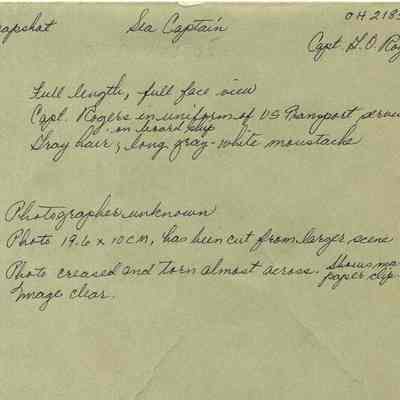 apshot Sea Captain OH 2185
Capt. G. O. Rog
Full length, full face view
Capt. Rogers in uniform of US Transport serv
on board ship
Gray hair; long gray-white moustache
Photographer unknown
Photo 19.6 x 10 cm, has been cut from larger scene
Photo creased and torn almost across. Shows ma
paper clip.
Image clear.